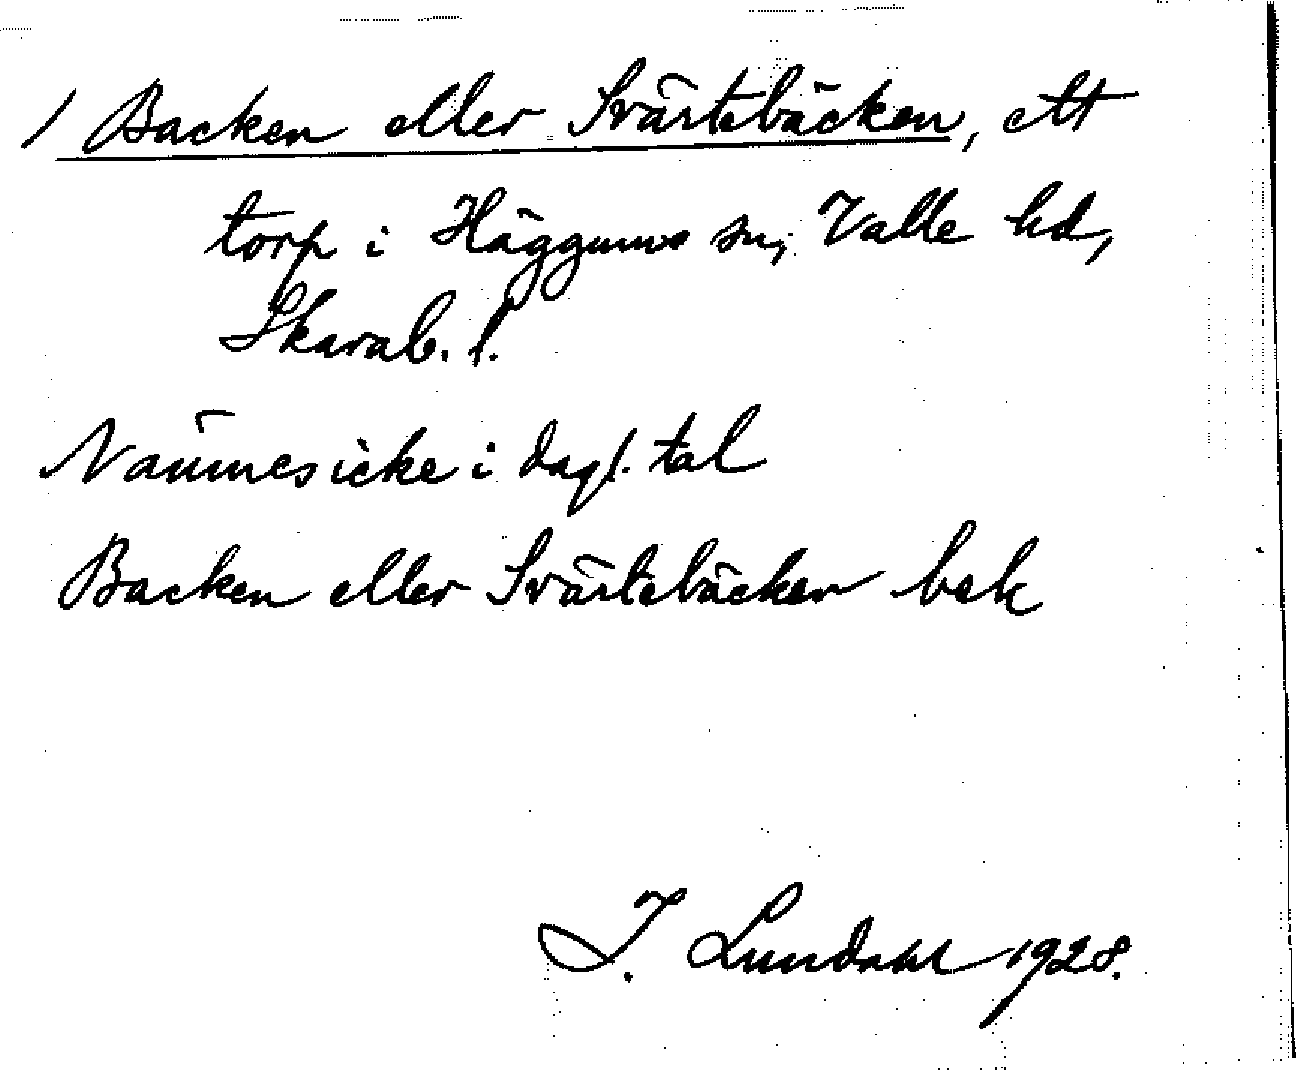 / Backen eller Svärtebäcken, ett
torp i Häggums sn, Valle hd,
Skarab. l.
Nämnes icke i dagl. tal
Backen eller Svärtebäcken bek
I. Lundahl 1928.